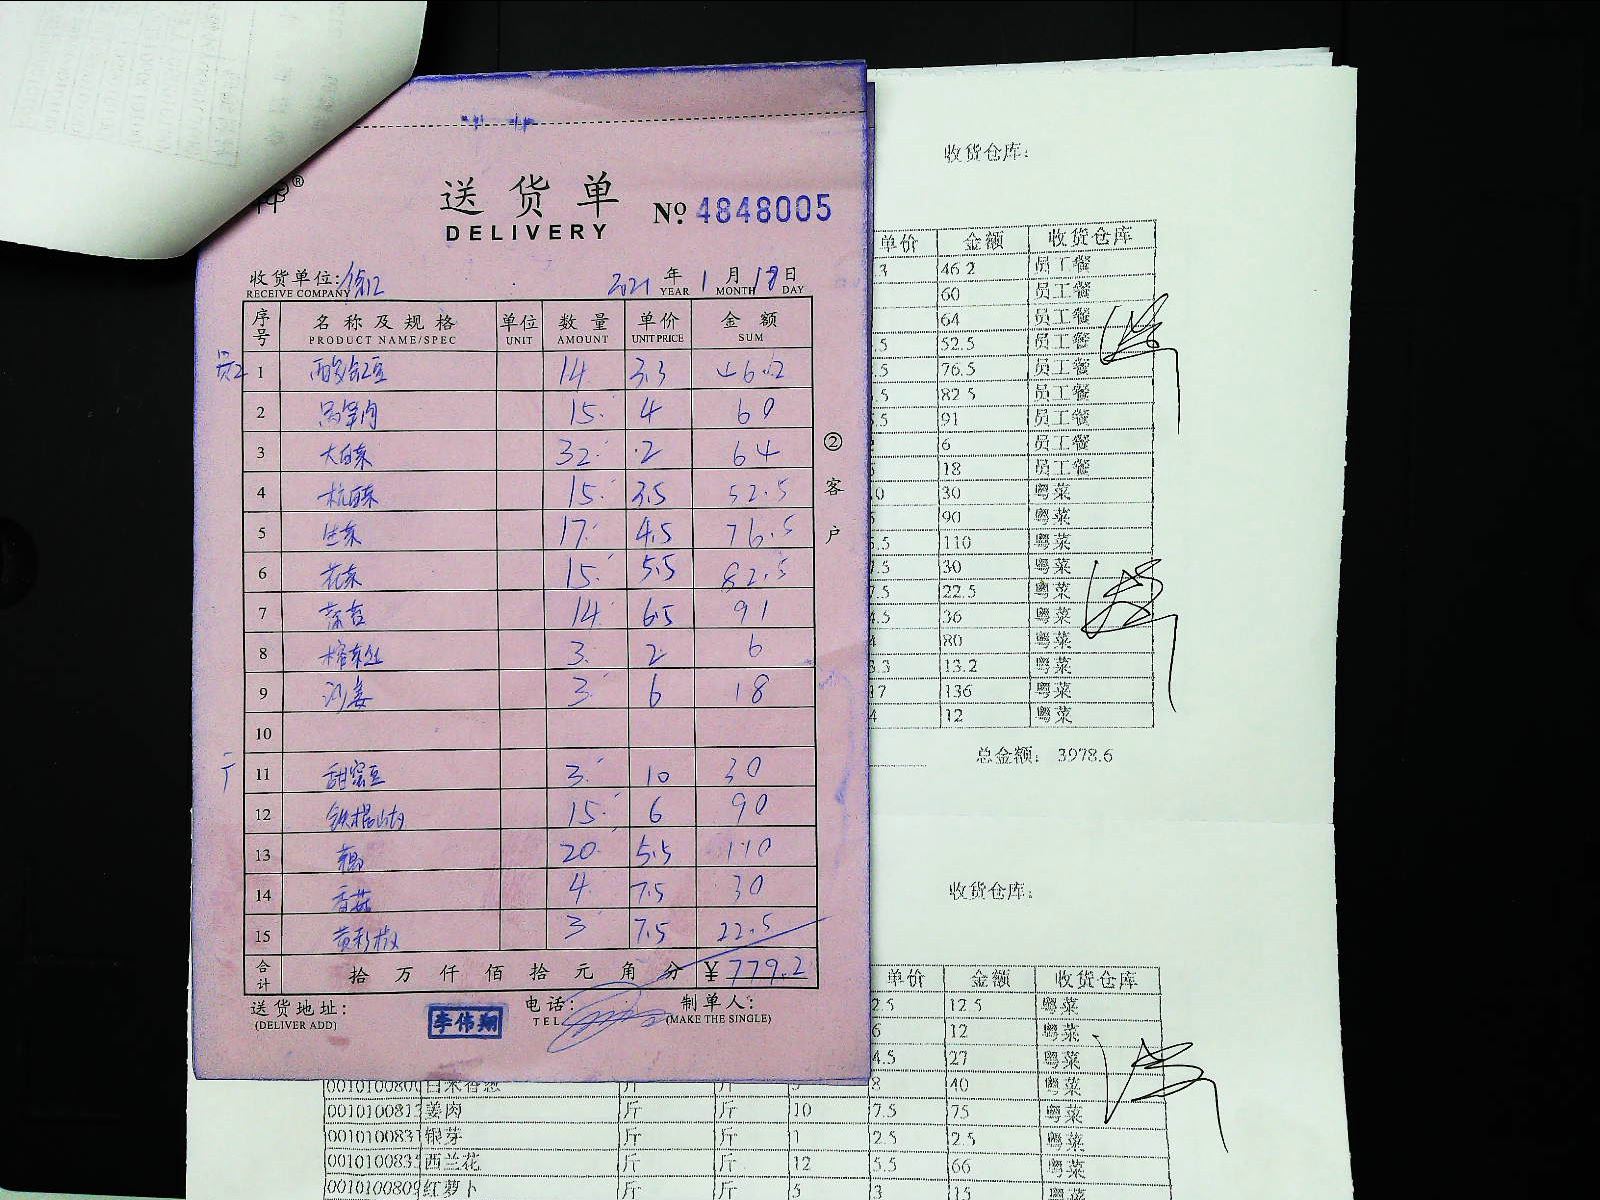 送货单
DELIVERY
№ 4848005
收货单位:
RECEIVE COMPANY
2021 年 1 月 18 日
YEAR MONTH DAY
序号 名称及规格 单位 数量 单价 金额
PRODUCT NAME/SPEC UNIT AMOUNT UNIT PRICE SUM
1 酸豇豆 14 3.3 46.2
2 15 4 60
3 大白菜 32 2 64
4 杭白菜 15 3.5 52.5
5 生菜 17 4.5 76.5
6 花菜 15 5.5 82.5
7 14 6.5 91
8 榨菜丝 3 2 6
9 沙姜 3 6 18
10
11 甜蜜豆 3 10 30
12 铁棍山 15 6 90
13 20 5.5 110
14 香菇 4 7.5 30
15 黄彩椒 3 7.5 22.5
合计 拾 万 仟 佰 拾 元 角 分 ¥ 779.2
② 客户
送货地址:
(DELIVER ADD)
李伟翔
电话:
TEL
制单人:
(MAKE THE SINGLE)
收货仓库:
单价 金额 收货仓库
3 46.2 员工餐
60 员工餐
64 员工餐
.5 52.5 员工餐
.5 76.5 员工餐
.5 82.5 员工餐
.5 91 员工餐
6 员工餐
18 员工餐
0 30 粤菜
90 粤菜
5.5 110 粤菜
7.5 30 粤菜
7.5 22.5 粤菜
4.5 36 粤菜
4 80 粤菜
3.3 13.2 粤菜
17 136 粤菜
4 12 粤菜
总金额: 3978.6
收货仓库:
单价 金额 收货仓库
2.5 12.5 粤菜
6 12 粤菜
4.5 27 粤菜
8 40 粤菜
001010081 姜肉 斤 斤 10 7.5 75 粤菜
001010083 银芽 斤 斤 1 2.5 2.5 粤菜
001010083 西兰花 斤 斤 12 5.5 66 粤菜
0010100809 红萝卜 斤 斤 5 3 15 粤菜